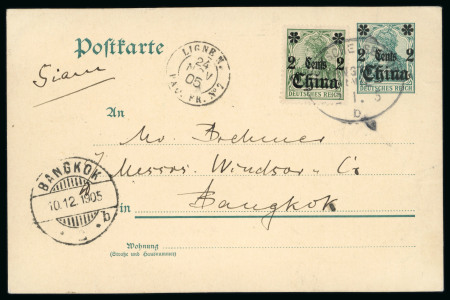 Postkarte
Siam
LIGNE N
24
NOV
05
PAQ. FR.
2 Cents 2
China
DEUTSCHES REICH
2 Cents 2
China
DEUTSCHES REICH
An
Mr. Brehmer
Messrs. Windsor & Co
in Bangkok
BANGKOK
10.12.1905
b
Wohnung
(Straße und Hausnummer)